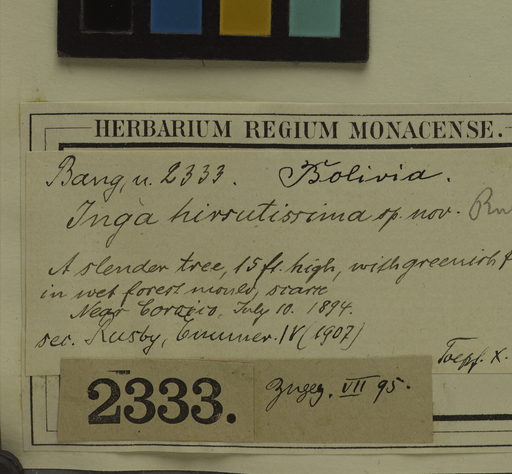 HERBARIUM REGIUM MONACENSE.
Bang, n. 2333. Bolivia.
Inga hirsutissima sp. nov. Ru
A slender tree, 15 ft. high, with greenish f
in wet forest mould, scarce
Near Coroico, July 10. 1894.
sec. Rusby, Enumer. IV (1907)
Toepf. X.
2333.
Zugeg. VII 95.